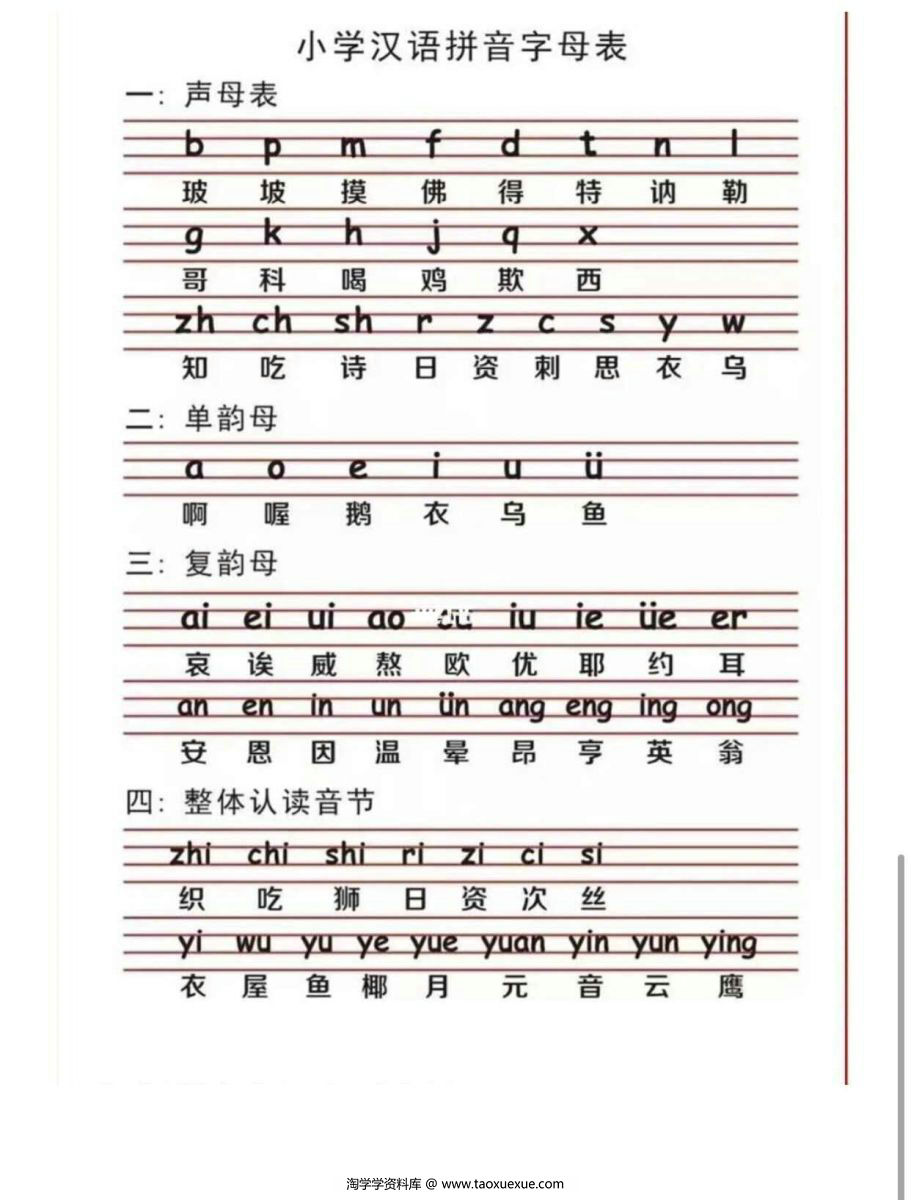 小学汉语拼音字母表
一：声母表
b p m f d t n l
玻 坡 摸 佛 得 特 讷 勒
g k h j q x
哥 科 喝 鸡 欺 西
zh ch sh r z c s y w
知 吃 诗 日 资 刺 思 衣 乌
二：单韵母
a o e i u ü
啊 喔 鹅 衣 乌 鱼
三：复韵母
ai ei ui ao iu ie üe er
哀 诶 威 熬 欧 优 耶 约 耳
an en in un ün ang eng ing ong
安 恩 因 温 晕 昂 亨 英 翁
四：整体认读音节
zhi chi shi ri zi ci si
织 吃 狮 日 资 次 丝
yi wu yu ye yue yuan yin yun ying
衣 屋 鱼 椰 月 元 音 云 鹰
淘学学资料库 @ www.taoxuexue.com